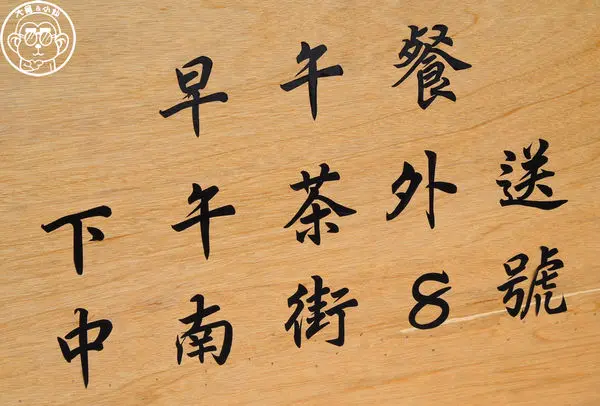 早午餐
下午茶外送
中南街8號